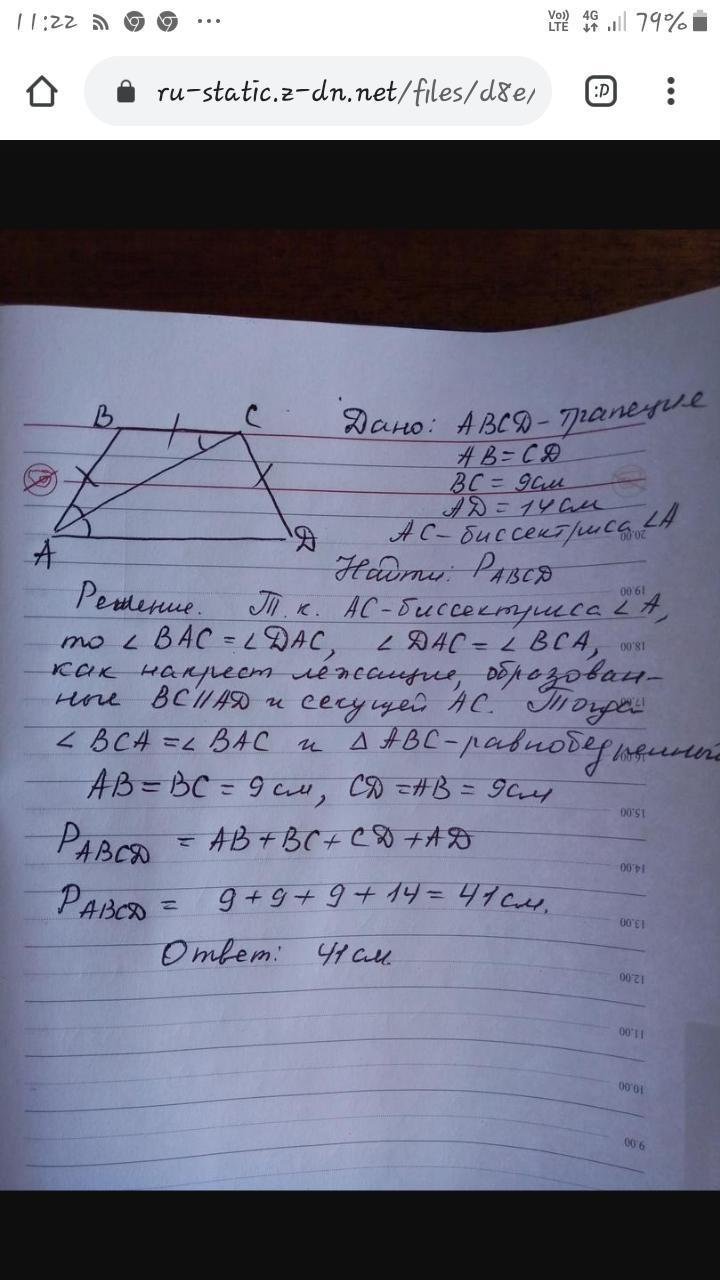 11:22 Vo) LTE 4G 79%
ru-static.z-dn.net/files/d8e/
:D
B C
A D
Дано: ABCD - трапеция
AB = CD
BC = 9см
AD = 14см
AC - биссектриса ∠A
Найти: P ABCD
Решение. Т. к. AC - биссектриса ∠A,
то ∠BAC = ∠DAC, ∠DAC = ∠BCA,
как накрест лежащие, образован-
ные BC || AD и секущей AC. Тогда
∠BCA = ∠BAC и ΔABC - равнобедренный
AB = BC = 9см, CD = AB = 9см
P ABCD = AB + BC + CD + AD
P ABCD = 9 + 9 + 9 + 14 = 41 см.
Ответ: 41 см.
20.00
19.00
18.00
17.00
16.00
15.00
14.00
13.00
12.00
11.00
10.00
9.00